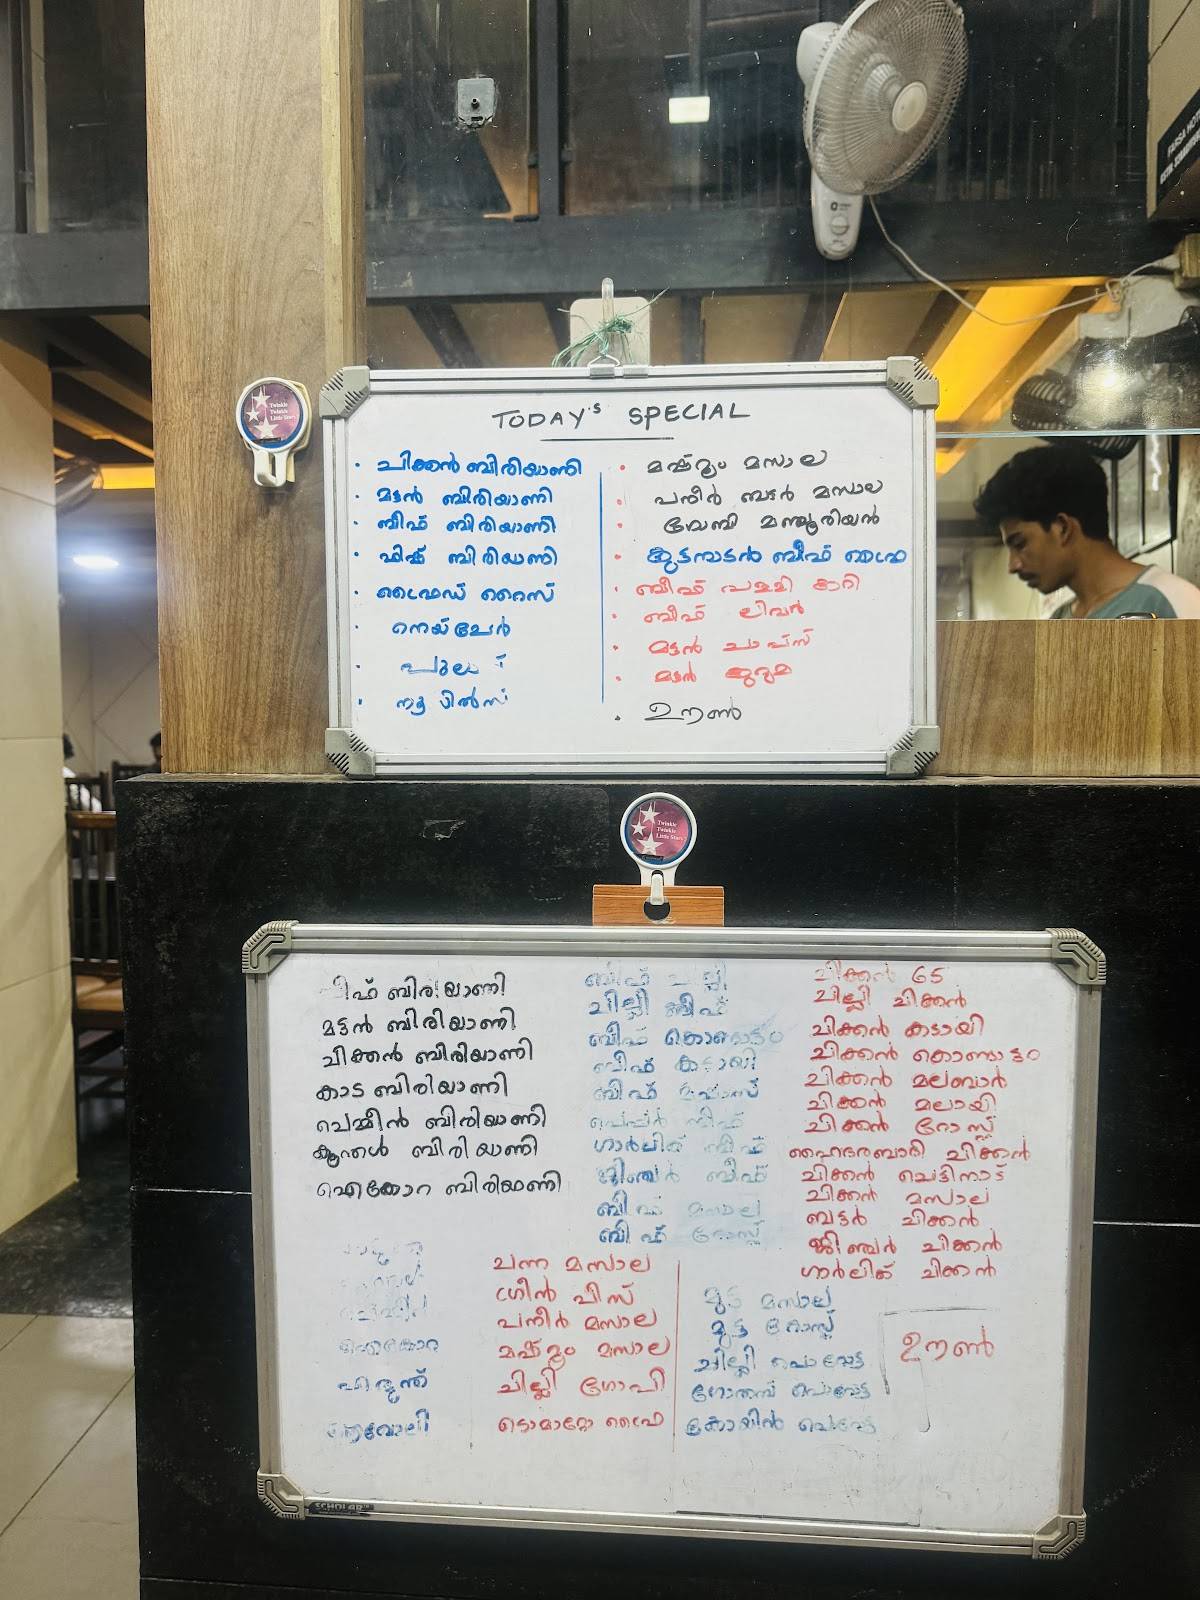 TODAY'S SPECIAL
• ചിക്കൻ ബിരിയാണി
• മട്ടൻ ബിരിയാണി
• ബീഫ് ബിരിയാണി
• ഫിഷ് ബിരിയാണി
• ഫ്രൈഡ് റൈസ്
നെയ്ചോർ
• നൂഡിൽസ്
• മഷ്റൂം മസാല
• പനീർ ബട്ടർ മസാല
• ഗോബി മഞ്ചൂരിയൻ
• കുട്ടനാടൻ ബീഫ് ഫ്രൈ
• ബീഫ് കറി
• ബീഫ് ലിവർ
• മട്ടൻ ചാപ്സ്
• മട്ടൻ കുറുമ
• ഊൺ
Twinkle
Twinkle
Little Star
Twinkle
Twinkle
Little Star
ബീഫ് ബിരിയാണി
മട്ടൻ ബിരിയാണി
ചിക്കൻ ബിരിയാണി
കാട ബിരിയാണി
ചെമ്മീൻ ബിരിയാണി
കൂന്തൾ ബിരിയാണി
ഐക്കോറ ബിരിയാണി
ബീഫ് ചില്ലി
ചില്ലി ബീഫ്
ബീഫ് കൊണ്ടാട്ടം
ബീഫ് കടായി
ബീഫ്
പെപ്പർ ബീഫ്
ഗാർലിക് ബീഫ്
ജിഞ്ചർ ബീഫ്
ബീഫ് മസാല
ബീഫ് റോസ്റ്റ്
ചിക്കൻ 65
ചില്ലി ചിക്കൻ
ചിക്കൻ കടായി
ചിക്കൻ കൊണ്ടാട്ടം
ചിക്കൻ മലബാർ
ചിക്കൻ മലായി
ചിക്കൻ റോസ്റ്റ്
ഹൈദരബാദി ചിക്കൻ
ചിക്കൻ ചെട്ടിനാട്
ചിക്കൻ മസാല
ബട്ടർ ചിക്കൻ
ജിഞ്ചർ ചിക്കൻ
ഗാർലിക് ചിക്കൻ
ഐക്കോറ
ആവോലി
ചന്ന മസാല
ഗ്രീൻ പീസ്
പനീർ മസാല
മഷ്റൂം മസാല
ചില്ലി ഗോപി
ടൊമാറ്റോ ഫ്രൈ
മുട്ട മസാല
മുട്ട റോസ്റ്റ്
ചില്ലി പൊറോട്ട
ഗോതമ്പ് പൊറോട്ട
കോയിൻ പൊറോട്ട
ഊൺ
SCHOLAR